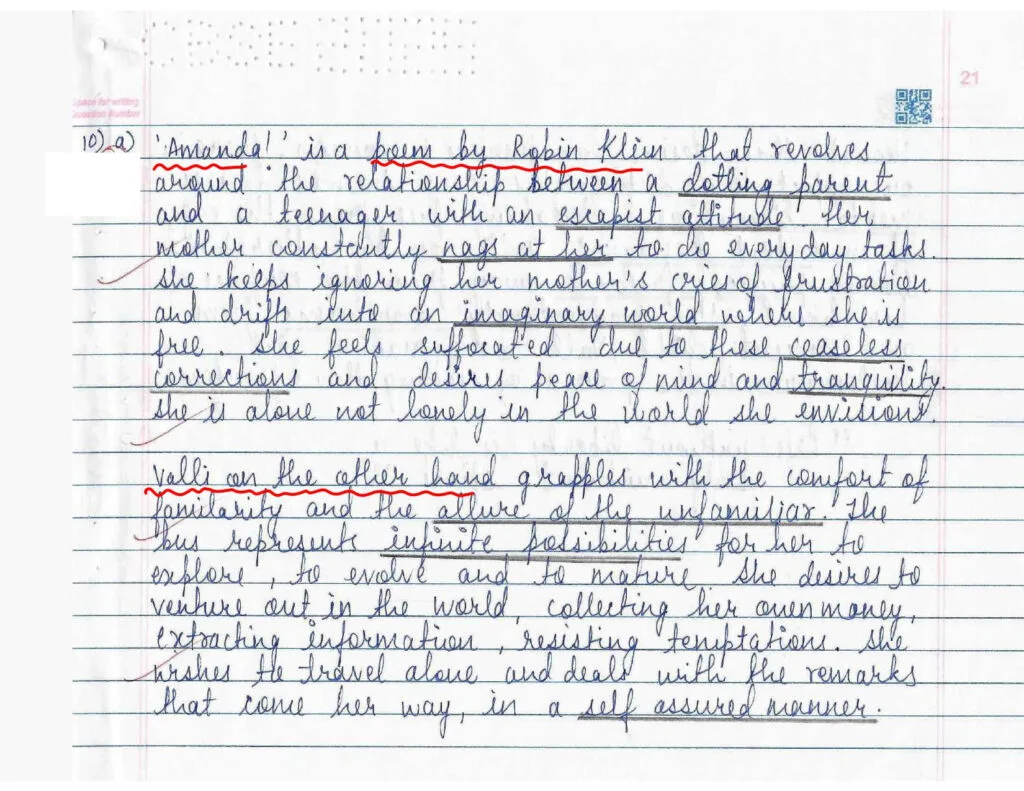 CBSE
21
Space for writing
Question Number
10) a) 'Amanda!' is a poem by Robin Klein that revolves
around the relationship between a dotling parent
and a teenager with an escapist attitude. Her
mother constantly nags at her to do everyday tasks.
She keeps ignoring her mother's cries of frustration
and drift into an imaginary world where she is
free. She feels suffocated due to these ceaseless
corrections and desires peace of mind and tranquility.
She is alone not lonely in the world she envisions.
Valli on the other hand grapples with the comfort of
familarity and the allure of the unfamiliar. The
bus represents infinite possibilities for her to
explore, to evolve and to mature. She desires to
venture out in the world, collecting her own money,
extracting information, resisting temptations. She
wishes to travel alone and deals with the remarks
that come her way, in a self assured manner.